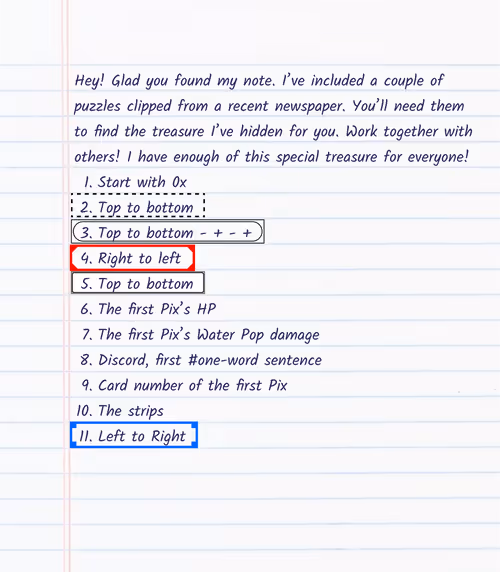 Hey! Glad you found my note. I've included a couple of
puzzles clipped from a recent newspaper. You'll need them
to find the treasure I've hidden for you. Work together with
others! I have enough of this special treasure for everyone!
1. Start with 0x
2. Top to bottom
3. Top to bottom - + - +
4. Right to left
5. Top to bottom
6. The first Pix's HP
7. The first Pix's Water Pop damage
8. Discord, first #one-word sentence
9. Card number of the first Pix
10. The strips
11. Left to Right